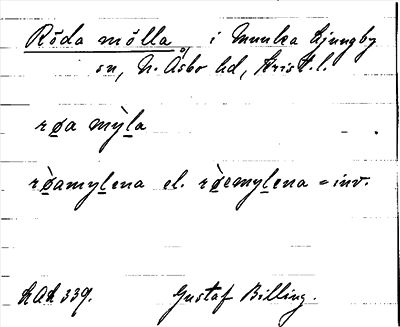 Röda mölla i Munka Ljungby
sn, N. Åsbo hd, Krist. l.
røa mỳla
rø̀amylena el. rø̀emylena = inv.
LAL 339. Gustaf Billing.